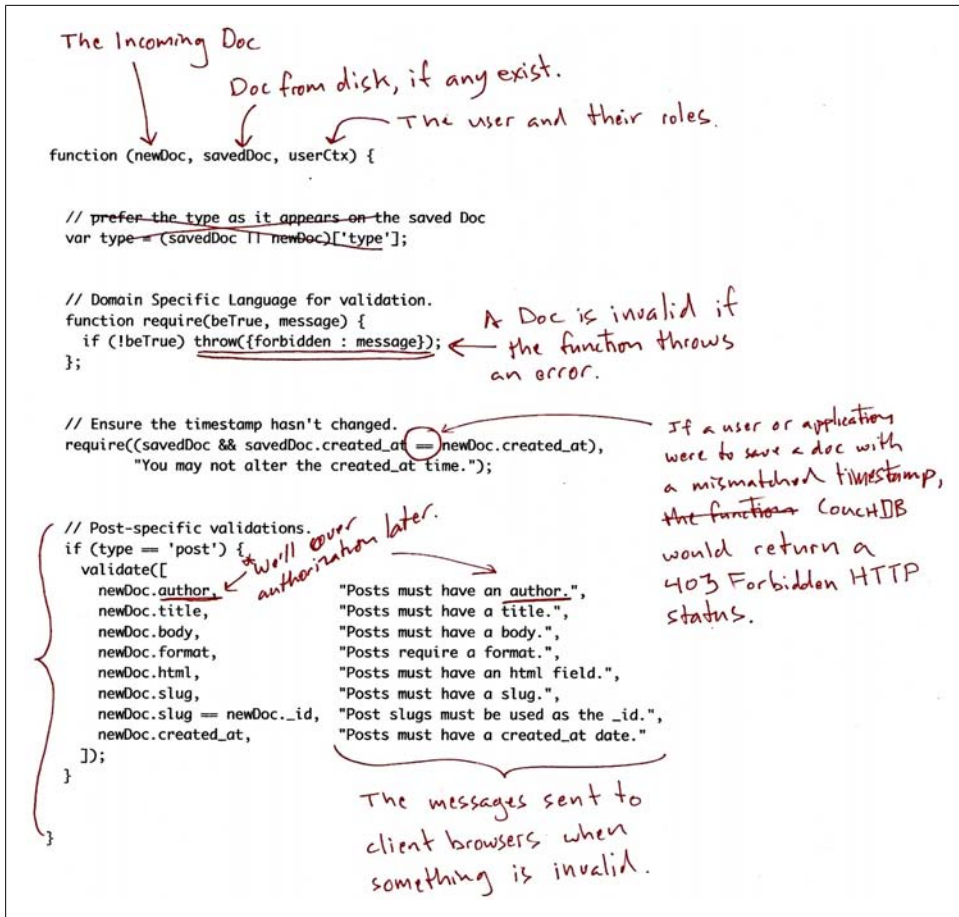 The Incoming Doc
Doc from disk, if any exist.
The user and their roles.
function (newDoc, savedDoc, userCtx) {
// prefer the type as it appears on the saved Doc
var type = (savedDoc || newDoc)['type'];
// Domain Specific Language for validation.
function require(beTrue, message) {
if (!beTrue) throw({forbidden : message});
};
A Doc is invalid if
the function throws
an error.
// Ensure the timestamp hasn't changed.
require((savedDoc && savedDoc.created_at == newDoc.created_at),
"You may not alter the created_at time.");
If a user or application
were to save a doc with
a mismatched timestamp,
the function CouchDB
would return a
403 Forbidden HTTP
status.
// Post-specific validations.
if (type == 'post') {
validate([
*We'll cover
authorization later.
newDoc.author, "Posts must have an author.",
newDoc.title, "Posts must have a title.",
newDoc.body, "Posts must have a body.",
newDoc.format, "Posts require a format.",
newDoc.html, "Posts must have an html field.",
newDoc.slug, "Posts must have a slug.",
newDoc.slug == newDoc._id, "Post slugs must be used as the _id.",
newDoc.created_at, "Posts must have a created_at date."
]);
}
}
The messages sent to
client browsers when
something is invalid.